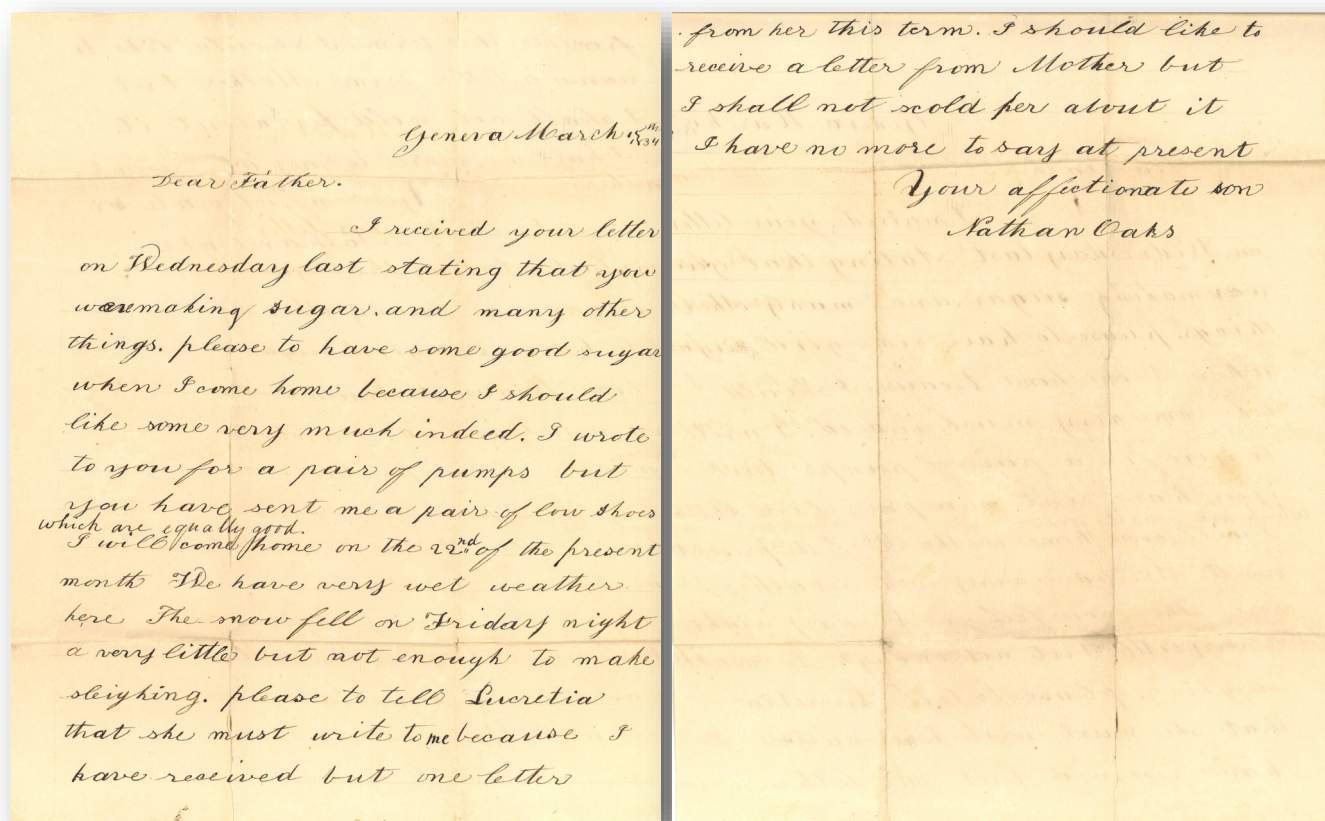 Geneva March 15th 1834
Dear Father.
I received your letter
on Wednesday last stating that you
were making sugar. and many other
things. please to have some good sugar
when I come home because I should
like some very much indeed. I wrote
to you for a pair of pumps but
you have sent me a pair of low shoes
which are equally good.
I will come home on the 22nd of the present
month We have very wet weather
here The snow fell on Friday night
a very little but not enough to make
sleighing. please to tell Lucretia
that she must write to me because I
have received but one letter
from her this term. I should like to
receive a letter from Mother but
I shall not scold her about it
I have no more to say at present
Your affectionate son
Nathan Oaks